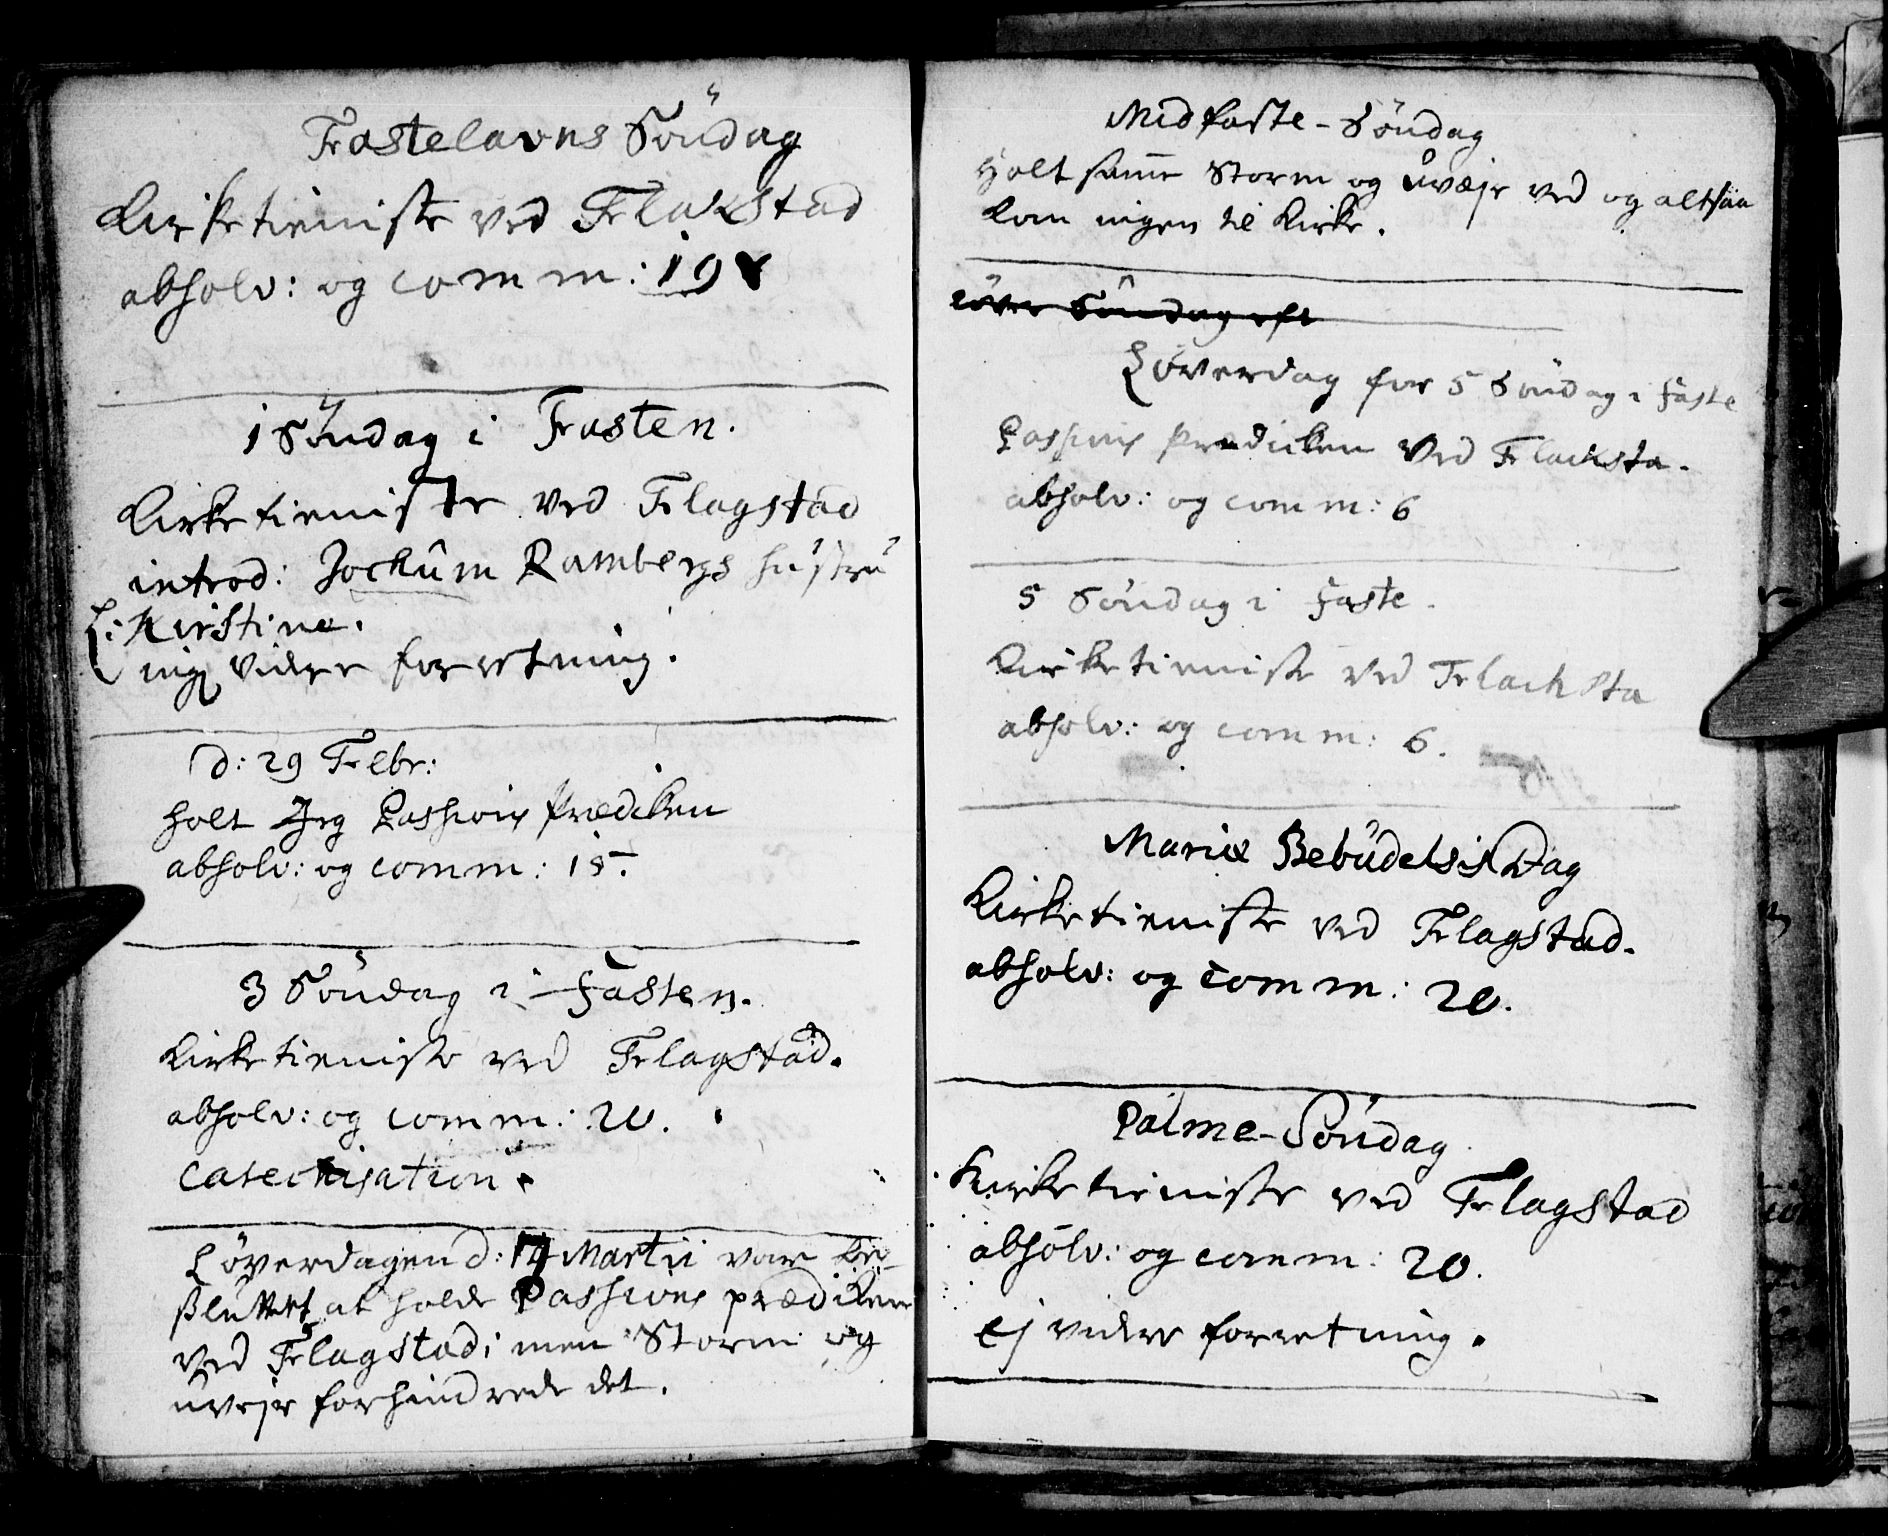 Fastelavns Søndag
Kirketieniste ved Flakstad
absolv: og comm: 19
1 Søndag i Fasten.
Kirketieniste ved Flagstad
introd: Jochum Rambergs hustru
Kirstine.
ing videre forretning.
d: 29 Febr:
holt Jeg Passions Prædiken
absolv: og comm: 15.
3 Søndag i Fasten.
Kirketieniste ved Flagstad.
absolv: og comm: 20.
Catechisation.
Løverdagen d: 14 Martii var be-
sluttet at holde Passions prædiken
ved Flagstad; men Storm og
uvejr forhindrede det.
Midfaste-Søndag
Holt samme Storm og uvejr ved og altsaa
kom ingen til Kirke.
Løver Søndag eft
Løverdag for 5 Søndag i Faste
Passions Prædicken ved Flachsta.
absolv: og comm: 6
5 Søndag i Faste.
Kirketieniste ved Flachsta
absolv: og comm: 6.
Mariæ Bebudelsis Dag
Kirketieniste ved Flagstad.
absolv: og comm: 20.
Palme-Søndag
Kirketieniste ved Flagstad
absolv: og comm: 20.
ej videre forretning.